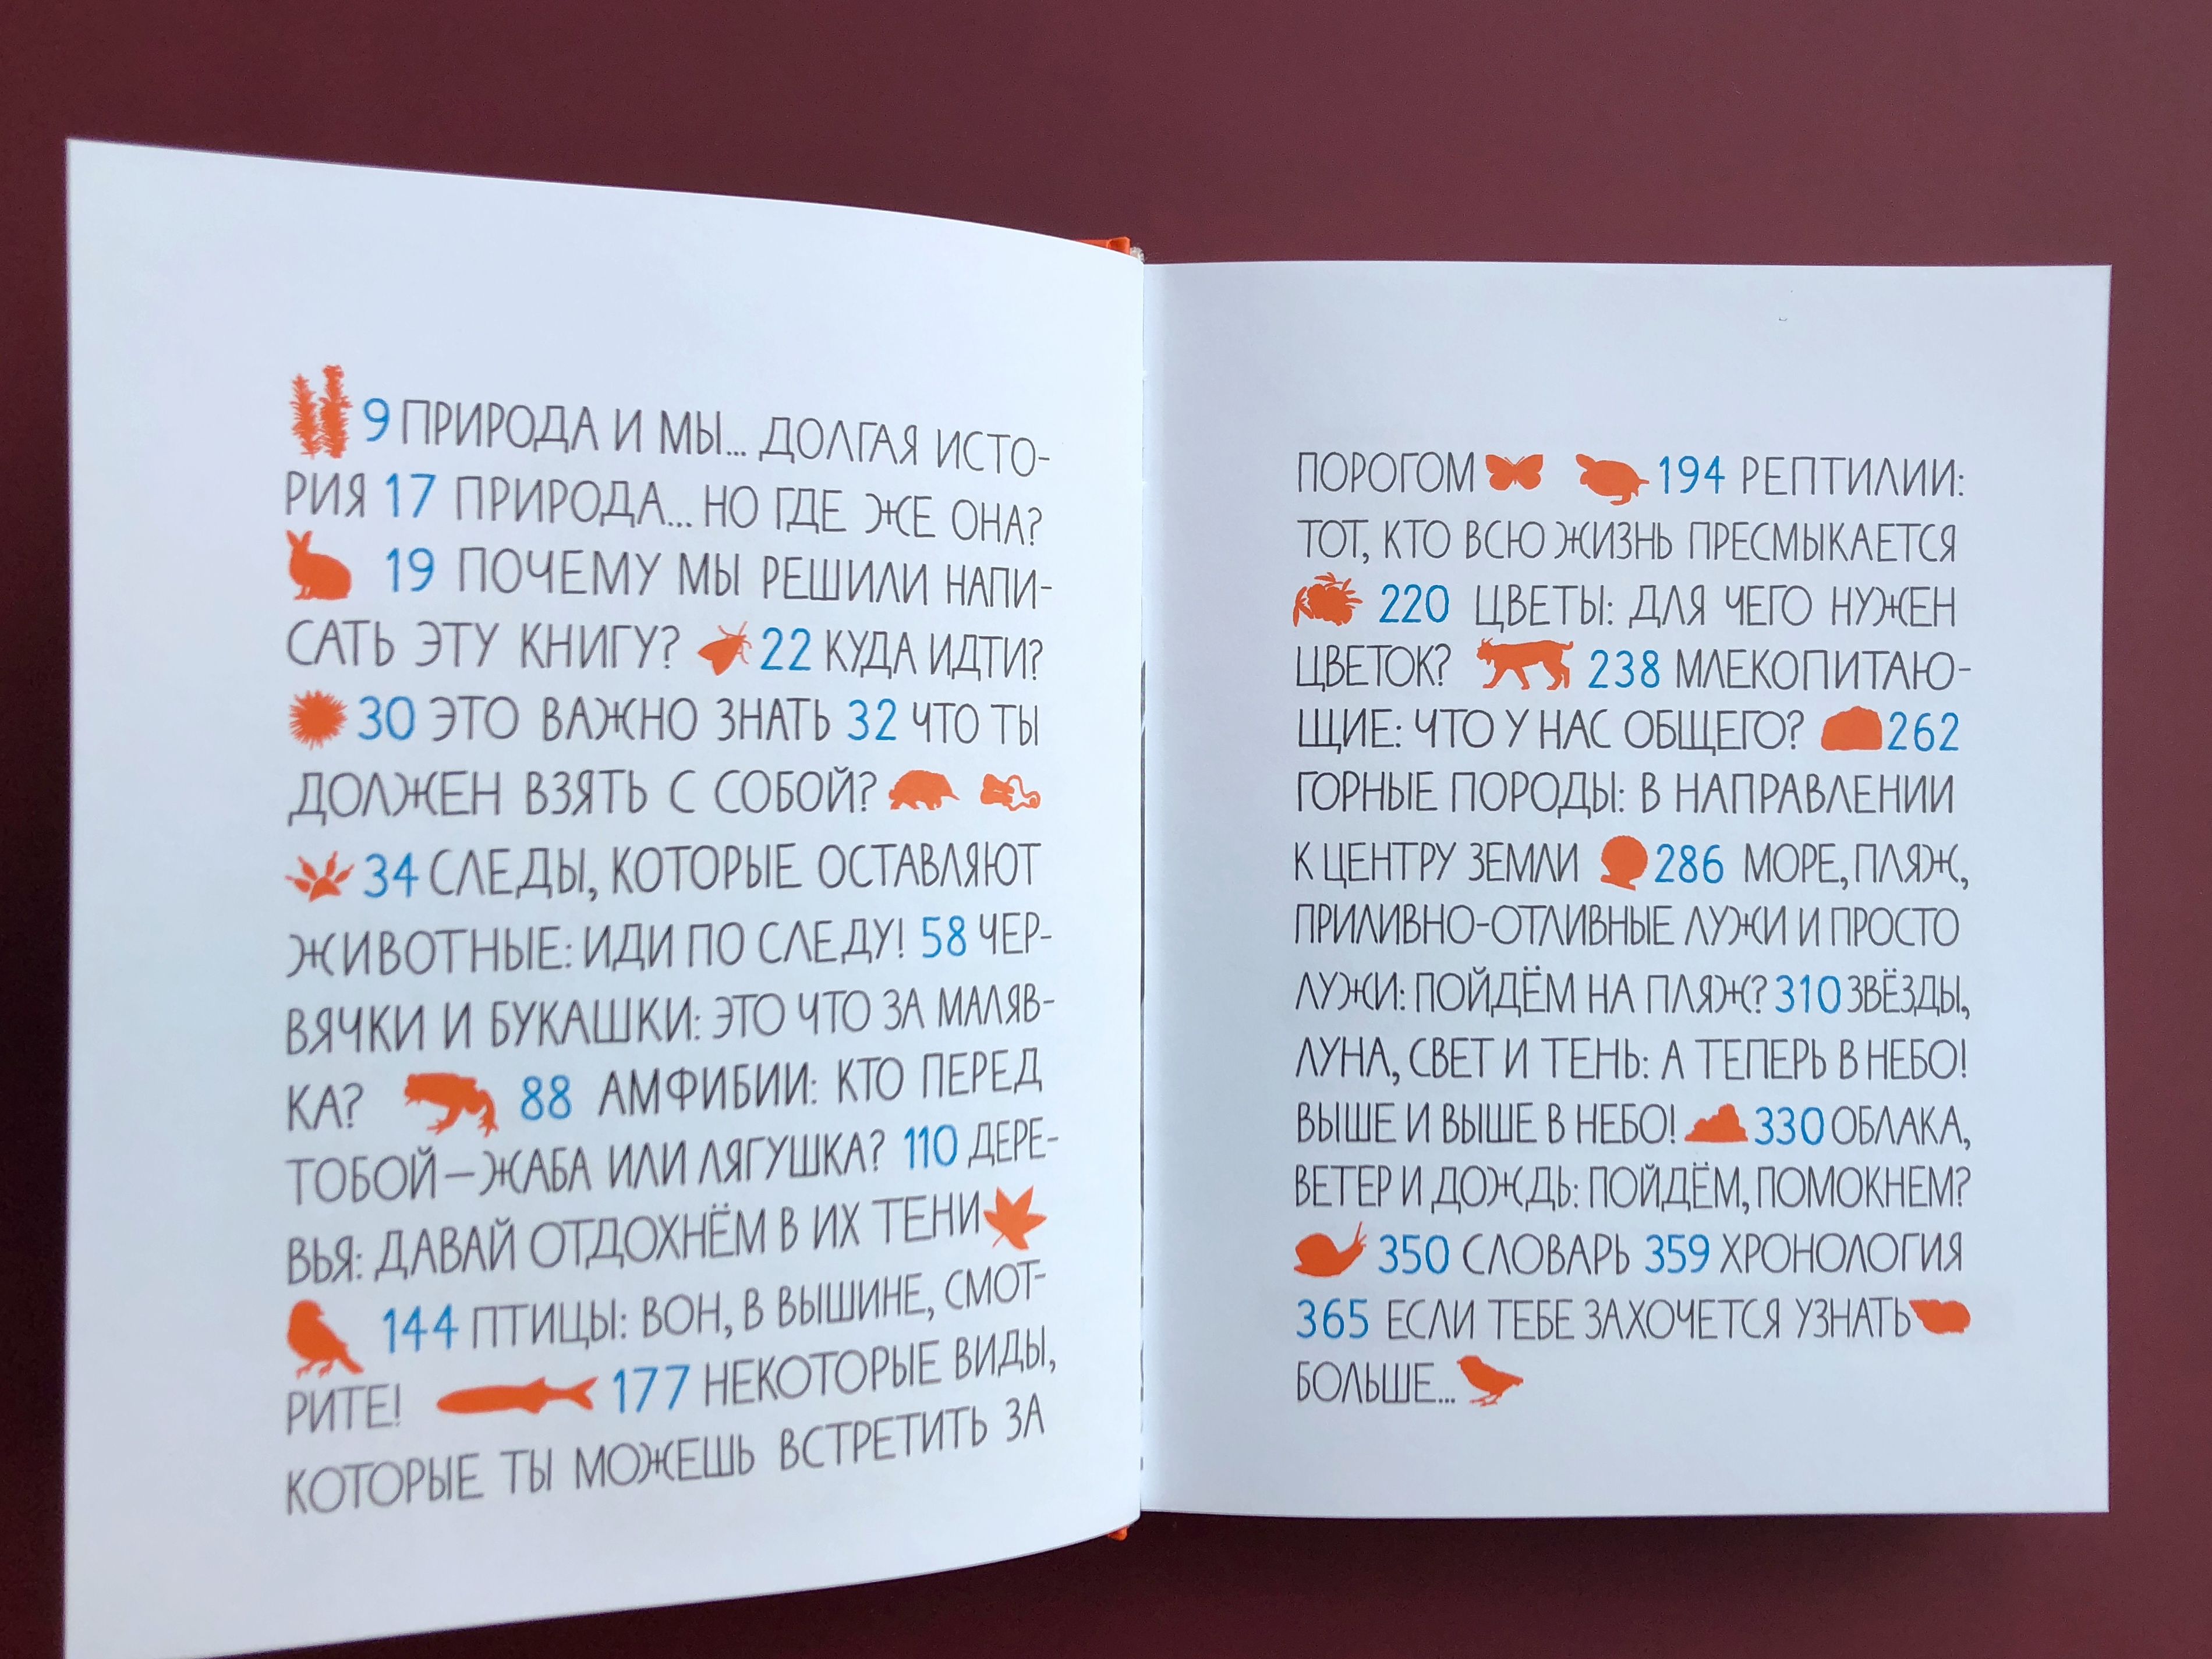 9 ПРИРОДА И МЫ... ДОЛГАЯ ИСТО-
РИЯ 17 ПРИРОДА... НО ГДЕ ЖЕ ОНА?
19 ПОЧЕМУ МЫ РЕШИЛИ НАПИ-
САТЬ ЭТУ КНИГУ? 22 КУДА ИДТИ?
30 ЭТО ВАЖНО ЗНАТЬ 32 ЧТО ТЫ
ДОЛЖЕН ВЗЯТЬ С СОБОЙ?
34 СЛЕДЫ, КОТОРЫЕ ОСТАВЛЯЮТ
ЖИВОТНЫЕ: ИДИ ПО СЛЕДУ! 58 ЧЕР-
ВЯЧКИ И БУКАШКИ: ЭТО ЧТО ЗА МАЛЯВ-
КА? 88 АМФИБИИ: КТО ПЕРЕД
ТОБОЙ — ЖАБА ИЛИ ЛЯГУШКА? 110 ДЕРЕ-
ВЬЯ: ДАВАЙ ОТДОХНЁМ В ИХ ТЕНИ
144 ПТИЦЫ: ВОН, В ВЫШИНЕ, СМОТ-
РИТЕ! 177 НЕКОТОРЫЕ ВИДЫ,
КОТОРЫЕ ТЫ МОЖЕШЬ ВСТРЕТИТЬ ЗА
ПОРОГОМ 194 РЕПТИЛИИ:
ТОТ, КТО ВСЮ ЖИЗНЬ ПРЕСМЫКАЕТСЯ
220 ЦВЕТЫ: ДЛЯ ЧЕГО НУЖЕН
ЦВЕТОК? 238 МЛЕКОПИТАЮ-
ЩИЕ: ЧТО У НАС ОБЩЕГО? 262
ГОРНЫЕ ПОРОДЫ: В НАПРАВЛЕНИИ
К ЦЕНТРУ ЗЕМЛИ 286 МОРЕ, ПЛЯЖ,
ПРИЛИВНО-ОТЛИВНЫЕ ЛУЖИ И ПРОСТО
ЛУЖИ: ПОЙДЁМ НА ПЛЯЖ? 310 ЗВЁЗДЫ,
ЛУНА, СВЕТ И ТЕНЬ: А ТЕПЕРЬ В НЕБО!
ВЫШЕ И ВЫШЕ В НЕБО! 330 ОБЛАКА,
ВЕТЕР И ДОЖДЬ: ПОЙДЁМ, ПОМОКНЕМ?
350 СЛОВАРЬ 359 ХРОНОЛОГИЯ
365 ЕСЛИ ТЕБЕ ЗАХОЧЕТСЯ УЗНАТЬ
БОЛЬШЕ...